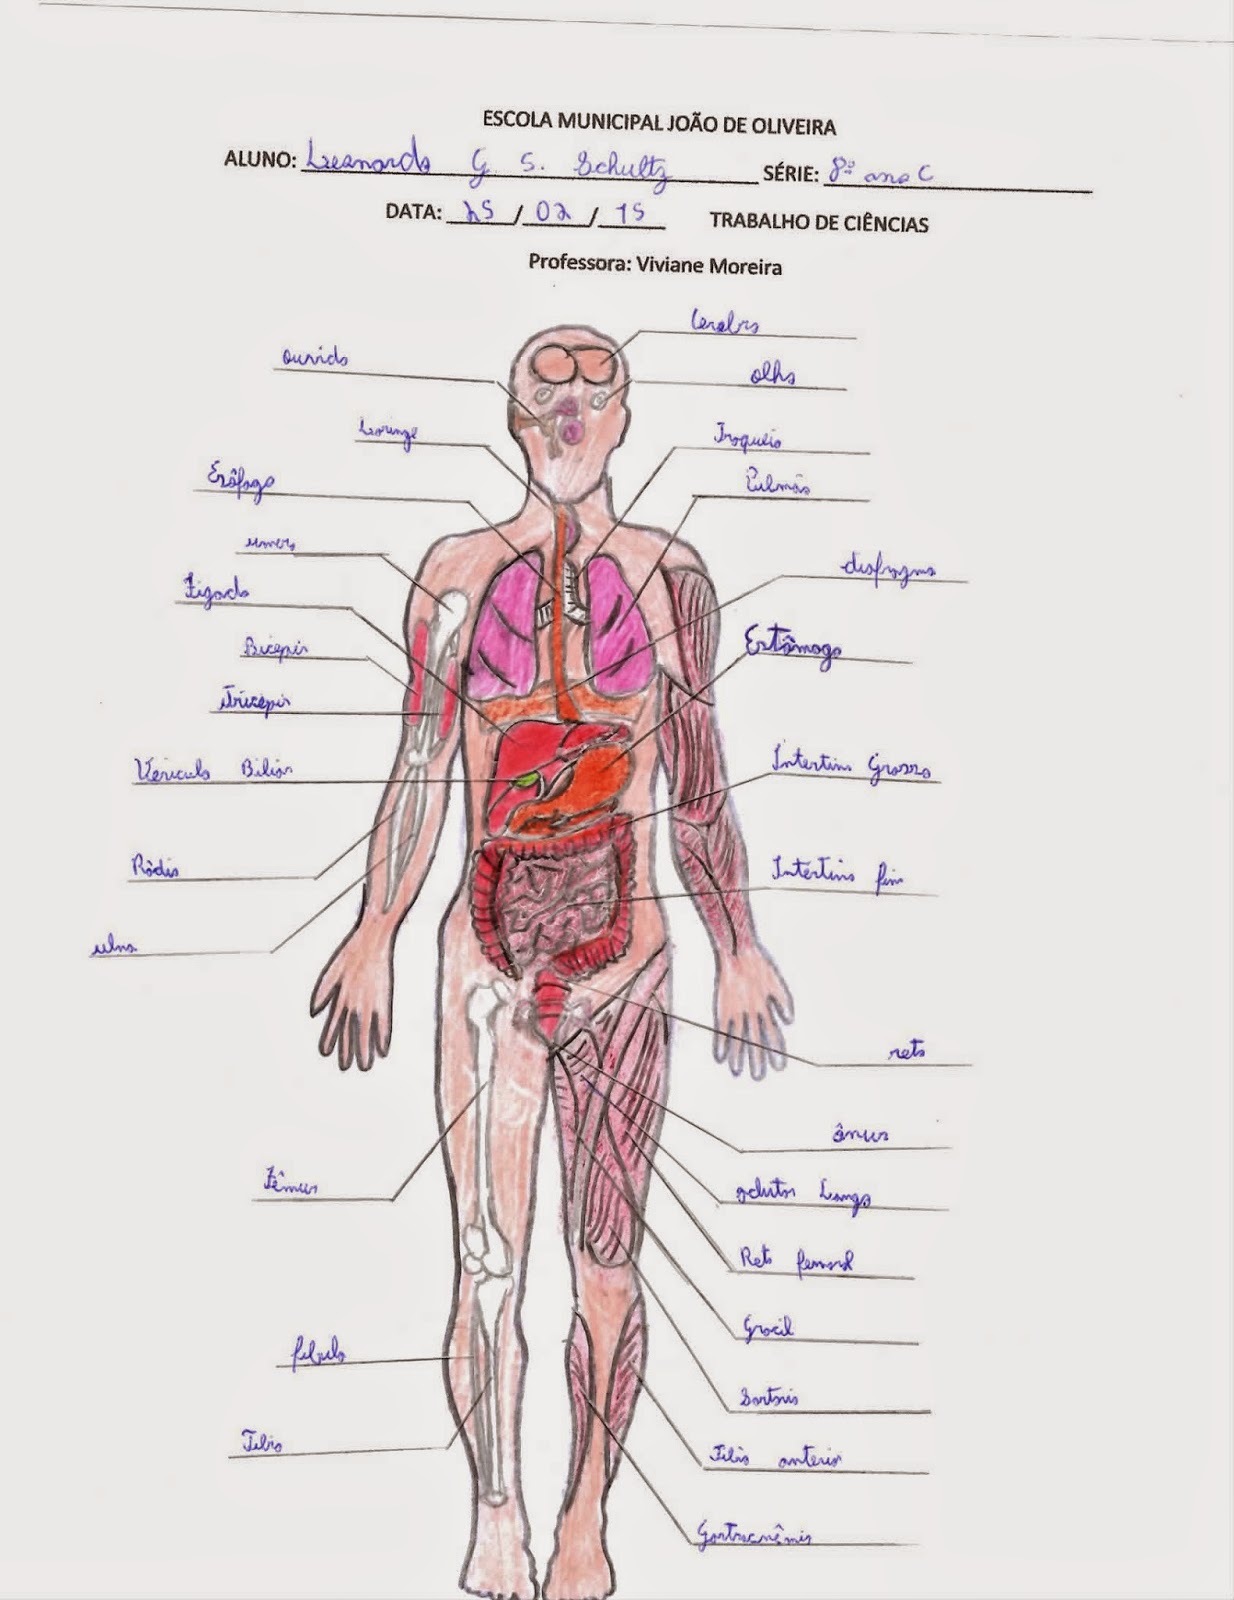 ESCOLA MUNICIPAL JOÃO DE OLIVEIRA
ALUNO: Leonardo G. S. Schultz SÉRIE: 8º ano C
DATA: 25 / 02 / 15 TRABALHO DE CIÊNCIAS
Professora: Viviane Moreira
Cerebro
ouvido
olho
Laringe
Traqueia
Esôfago
Pulmão
umero
diafragma
Figado
Bicepis
Estômago
Tricepis
Vesicula Biliar
Intestino Grosso
Rádio
Intestino fino
ulna
reto
ânus
Fêmur
adutor Longo
Reto femoral
Gracil
fibula
Sartorio
Tibia
Tibio anterior
Gastrocnêmio